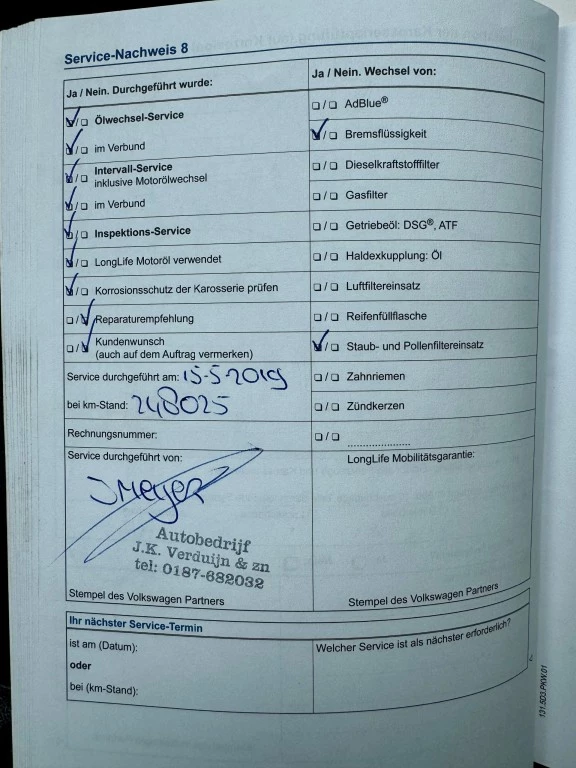 Service-Nachweis 8
Ja / Nein. Durchgeführt wurde:
☑/☐ Ölwechsel-Service
☑/☐ im Verbund
☑/☐ Intervall-Service
inklusive Motorölwechsel
☑/☐ im Verbund
☑/☐ Inspektions-Service
☑/☐ LongLife Motoröl verwendet
☑/☐ Korrosionsschutz der Karosserie prüfen
☐/☑ Reparaturempfehlung
☐/☑ Kundenwunsch
(auch auf dem Auftrag vermerken)
Service durchgeführt am: 15-5-2019
bei km-Stand: 248025
Rechnungsnummer:
Service durchgeführt von:
J Meyer
Autobedrijf
J.K. Verduijn & zn
tel: 0187-682032
Stempel des Volkswagen Partners
Ja / Nein. Wechsel von:
☐/☐ AdBlue®
☑/☐ Bremsflüssigkeit
☐/☐ Dieselkraftstofffilter
☐/☐ Gasfilter
☐/☐ Getriebeöl: DSG®, ATF
☐/☐ Haldexkupplung: Öl
☐/☐ Luftfiltereinsatz
☐/☐ Reifenfüllflasche
☑/☐ Staub- und Pollenfiltereinsatz
☐/☐ Zahnriemen
☐/☐ Zündkerzen
☐/☐ ....................
LongLife Mobilitätsgarantie:
Stempel des Volkswagen Partners
Ihr nächster Service-Termin
ist am (Datum):
oder
bei (km-Stand):
Welcher Service ist als nächster erforderlich?
131.5D3.PKW.01